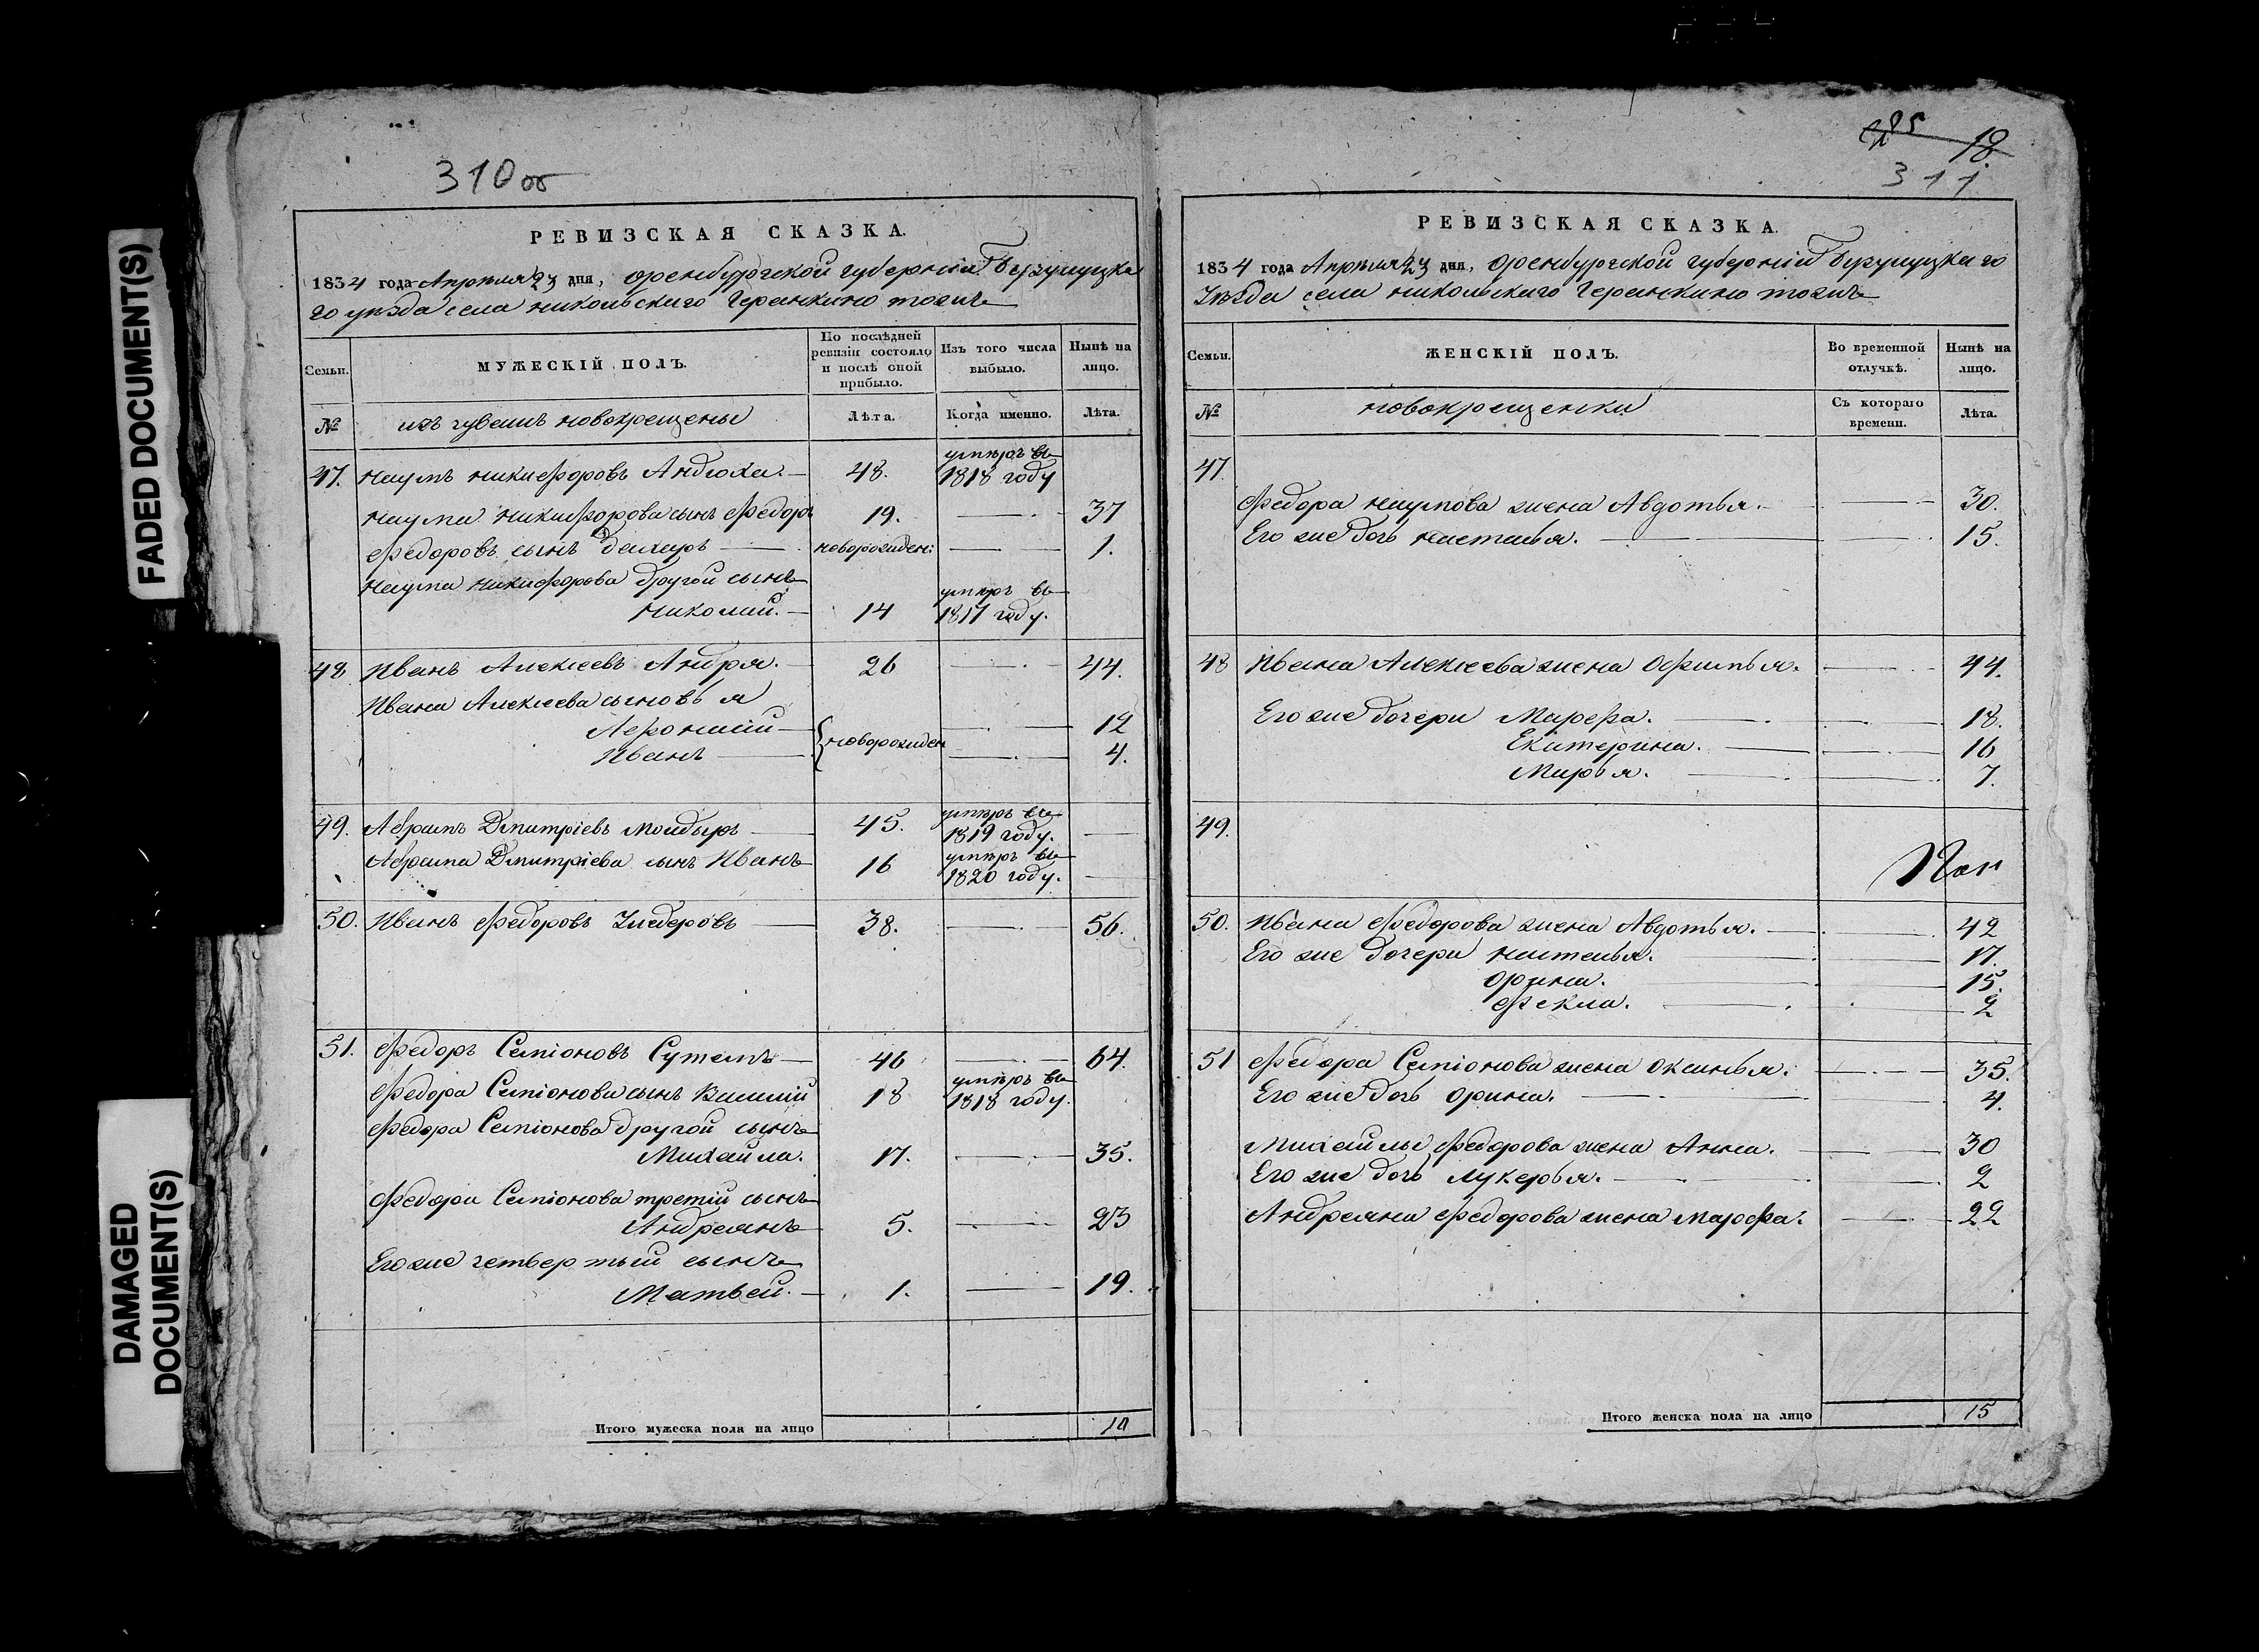 FADED DOCUMENT(S)
DAMAGED
DOCUMENT(S)
310 об
РЕВИЗСКАЯ СКАЗКА.
1834 года Апреля 23 дня, Оренбургской губерніи Бузулуцка
го уезда села Никольскаго Геранкино тожъ
Семьи. МУЖЕСКІЙ ПОЛЪ. По послѣдней ревизіи состояло и послѣ оной прибыло. Изъ того числа выбыло. Нынѣ на лицо.
№ изъ чувашъ новокрещены Лѣта. Когда именно. Лѣта.
47. Наумъ Никифоровъ Андюха. 48. умѣръ въ 1818 году
Наума Никифорова сынъ Федоръ 19. 37
Федоровъ сынъ новорожден: 1.
Наума Никифорова другой сынъ
Николай. 14 умѣръ въ 1817 году.
48 Иванъ Алексеевъ Андря. 26 44.
Ивана Алексеева сыновья
12
Иванъ новорожден 4.
49. Абрамъ Дмитріевъ 45. умѣръ въ 1819 году.
Абрама Дмитріева сынъ Иванъ 16 умѣръ въ 1820 году.
50. Иванъ Федоровъ 38. 56.
51. Федоръ Семіоновъ 46 64.
Федора Семіонова сынъ Василій 18 умѣръ въ 1818 году.
Федора Семіонова другой сынъ
Михайла. 17. 35.
Федора Семіонова третій сынъ
Андреянъ 5. 23
Его же четвертый сынъ
Матвей. 1. 19.
Итого мужеска пола на лицо 10
18.
311
РЕВИЗСКАЯ СКАЗКА.
1834 года Апреля 23 дня, Оренбургской губерніи Бузулуцкаго
Уезда села Никольскаго Геранкино тожъ
Семьи. ЖЕНСКІЙ ПОЛЪ. Во временной отлучкѣ. Нынѣ на лицо.
№ новокрещенки Съ котораго времени. Лѣта.
47
Федора Наумова жена Авдотья. 30.
Его же дочь Настасья. 15.
48 Ивана Алексеева жена Офимья. 44.
Его же дочери Марфа. 18.
Екатерина. 16
Марья. 7.
49.
50. Ивана Федорова жена Авдотья. 42
Его же дочери Настасья. 17.
Орина. 15.
Фекла. 2
51 Федора Семіонова жена Оксинья. 35.
Его же дочь Орина. 4.
Михайлы Федорова жена Анна. 30
Его же дочь Лукерья. 2
Андреяна Федорова жена Марфа. 22
Итого женска пола на лицо 15